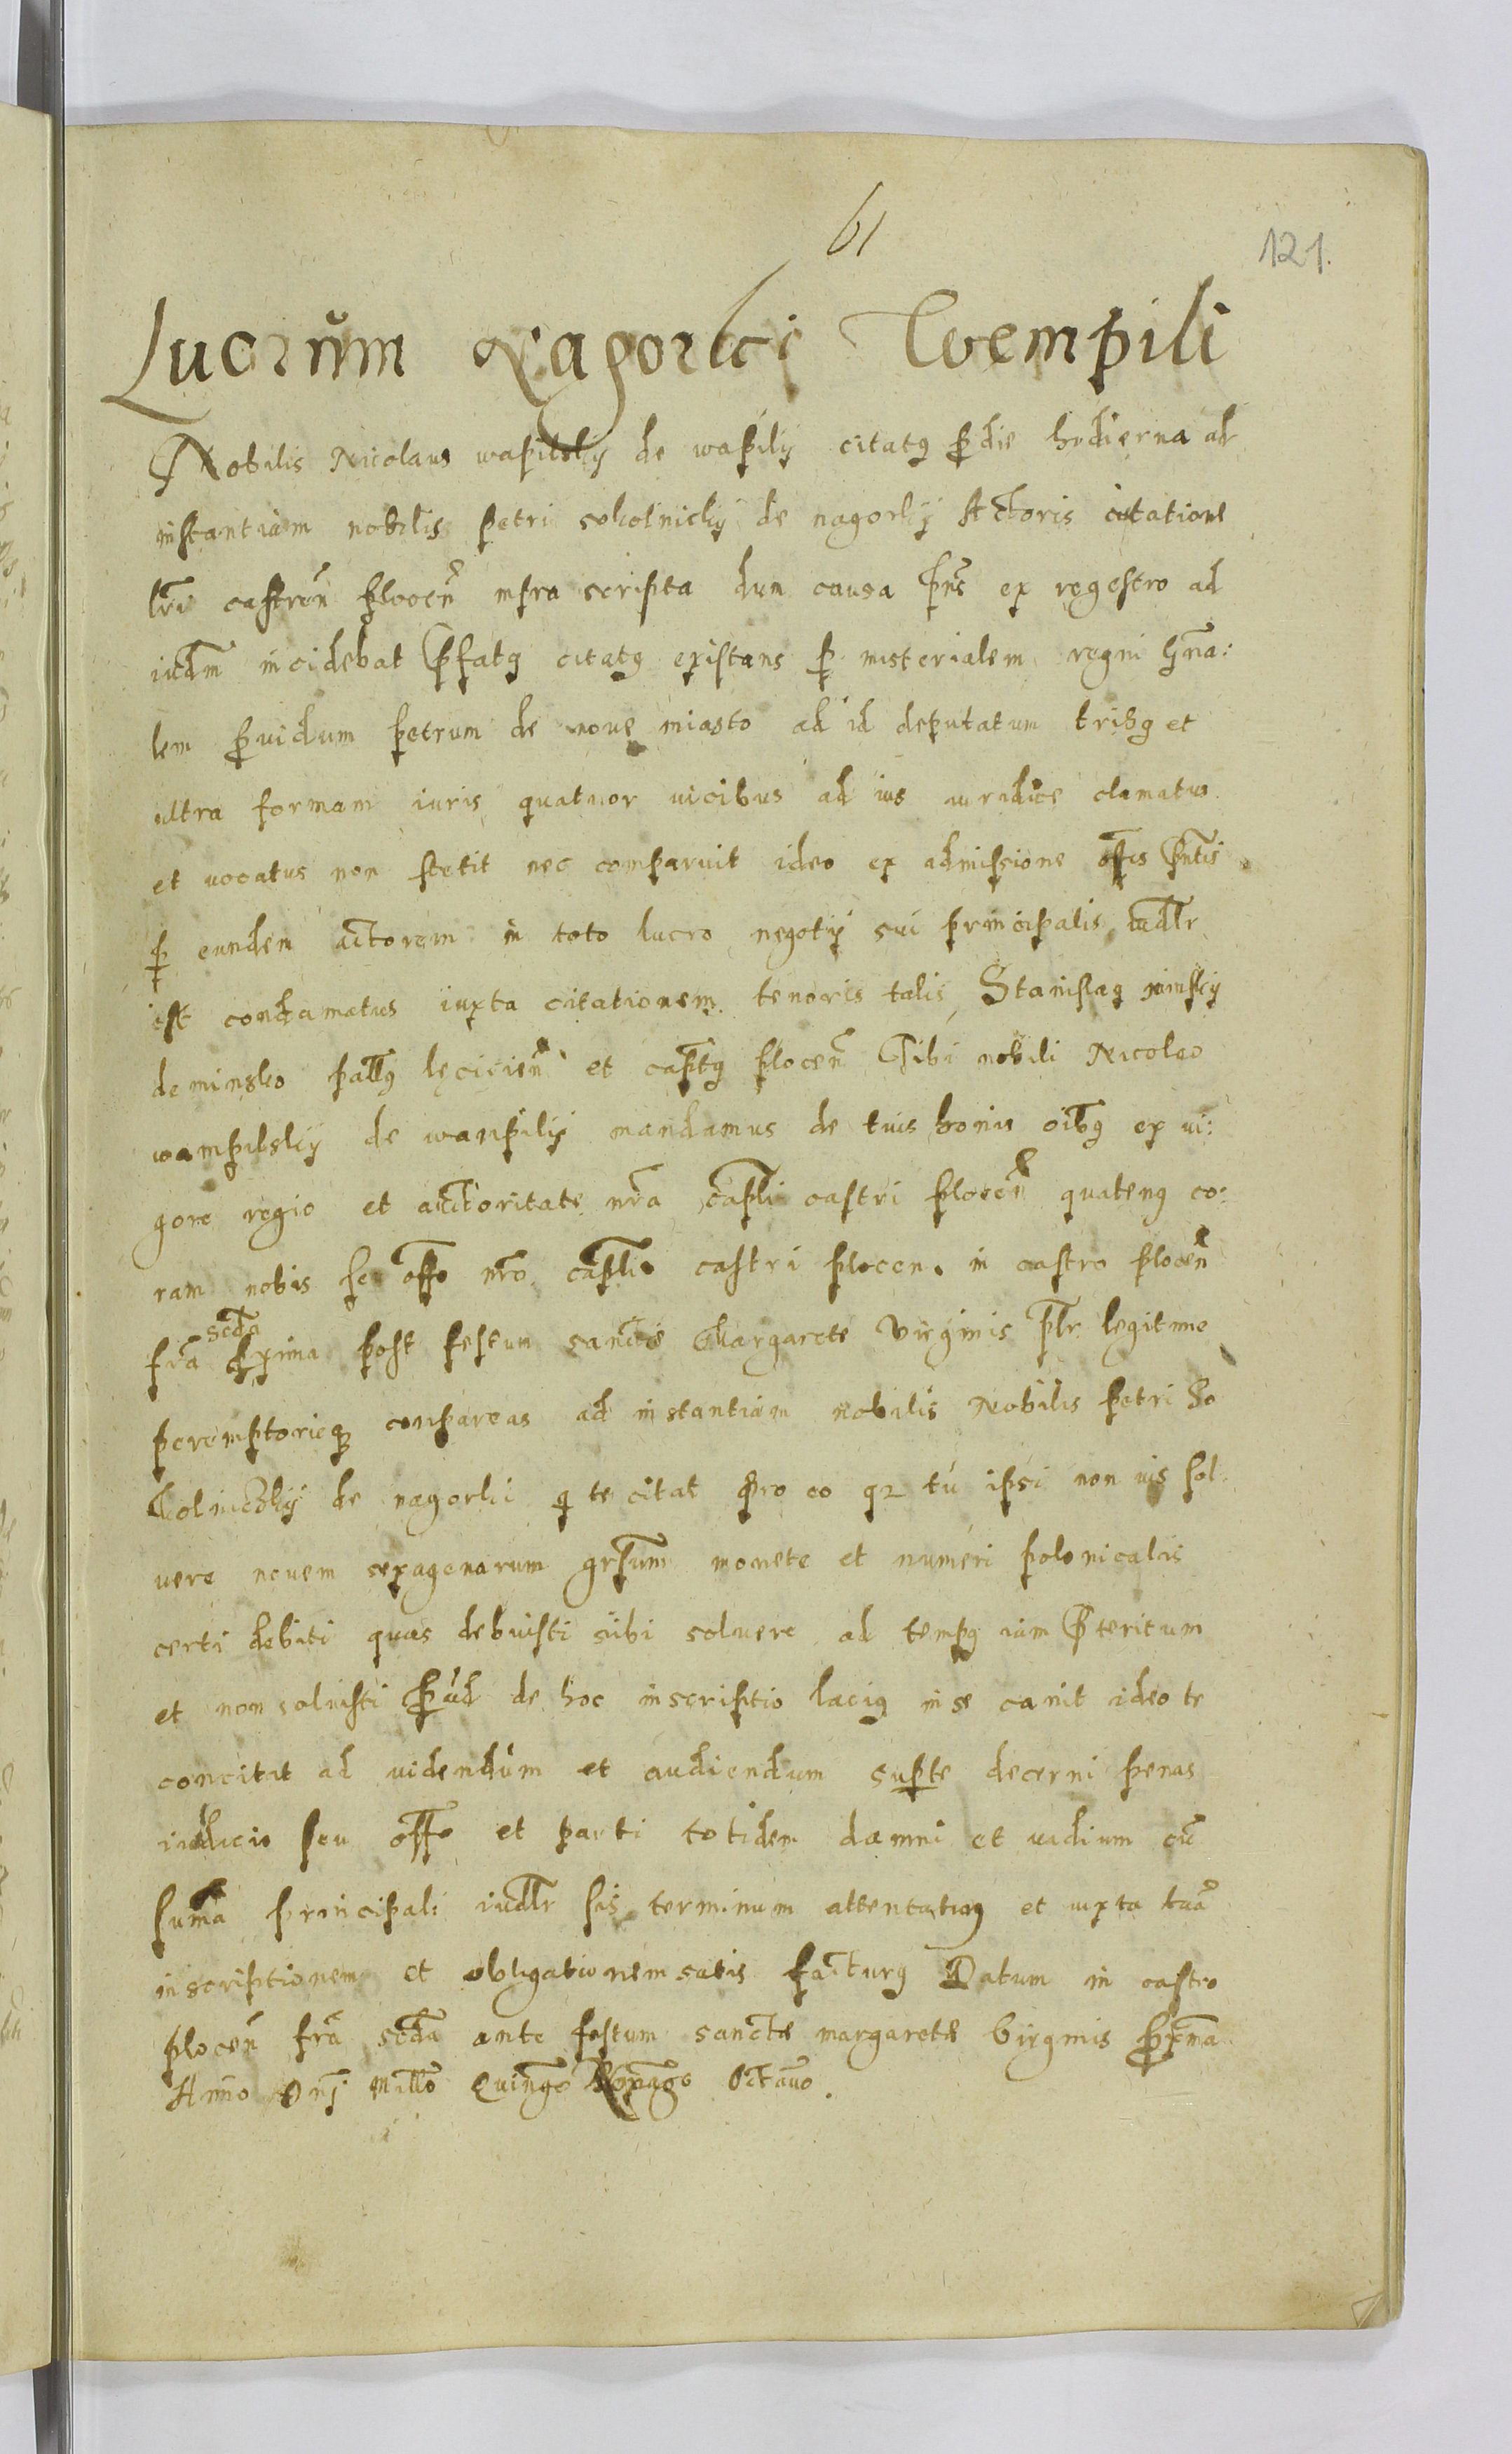 61
121.
Lucrum Nagorki Wempili
Nobilis Nicolaus wapilsky de wapily citatꝫ ꝓ die hodierna ad
instantiam nobilis petri sokolnicky de nagorky Actoris citatione
lrāi castren̄ plocen̄ infra scripta dum causa p̄ns ex regestro ad
iudm̄ incidebat p̄fatꝫ citatꝫ existans ꝑ misterialem regni gn̄a:
lem ꝓuidum petrum de nouę miasto ad id deputatum tribꝫ et
ultra formam iuris quatuor uicibus ad ius iuridice clamatus
et uocatus non stetit nec comparuit ideo ex admissione off̄is p̄ntis
ꝑ eundem actorem in toto lucro negotÿ sui principalis iudlr̄
est condamatus iuxta citationem tenoris talis Stanislaꝫ minsky
de minsko pall̄ꝫ lęcicien̄ et capt̄ꝫ plocen̄ Tibi nobili Nicolao
wampilsky de wanpily mandamus de tuis bonis oib̄ꝫ ex ui:
gore regio et auctoritate nr̄a capl̄i castri plocen̄ quatenꝫ co:
ram nobis se off̄o nr̄o capl̄i castri plocen. in castro plocen̄
scd̄a
fr̄a ꝓxima post festum sancte Margarete Virginis pl̄r legitime
peremptorieqꝫ conpareas ad instantiam nobilis Nobilis petri So
kolniczky de nagorki q te citat pro eo qꝛ tu ipsi non uis sol
uere nouem sexagenarum grs̄um monete et numeri polonicalis
certi debiti quas debuisti sibi soluere ad tempꝫ iam p̄teritum
et non soluisti ꝓūd de hoc inscriptio laciꝫ in se canit ideo te
concitat ad uidendum et audiendum supꝑ te decerni penas
iudicio seu off̄o et parti totidem damni et uadium cū
suma principali iudlr̄ sis terminum attentaturꝫ et iuxta tuā
inscriptionem et obligationem satis facturꝫ Datum in castro
plocen̄ fr̄a scd̄a ante festum sancte margarete Virginis ꝓxm̄a
Anno Dnj̄ Mill̄o Quinḡo Sexaḡo Octauo.